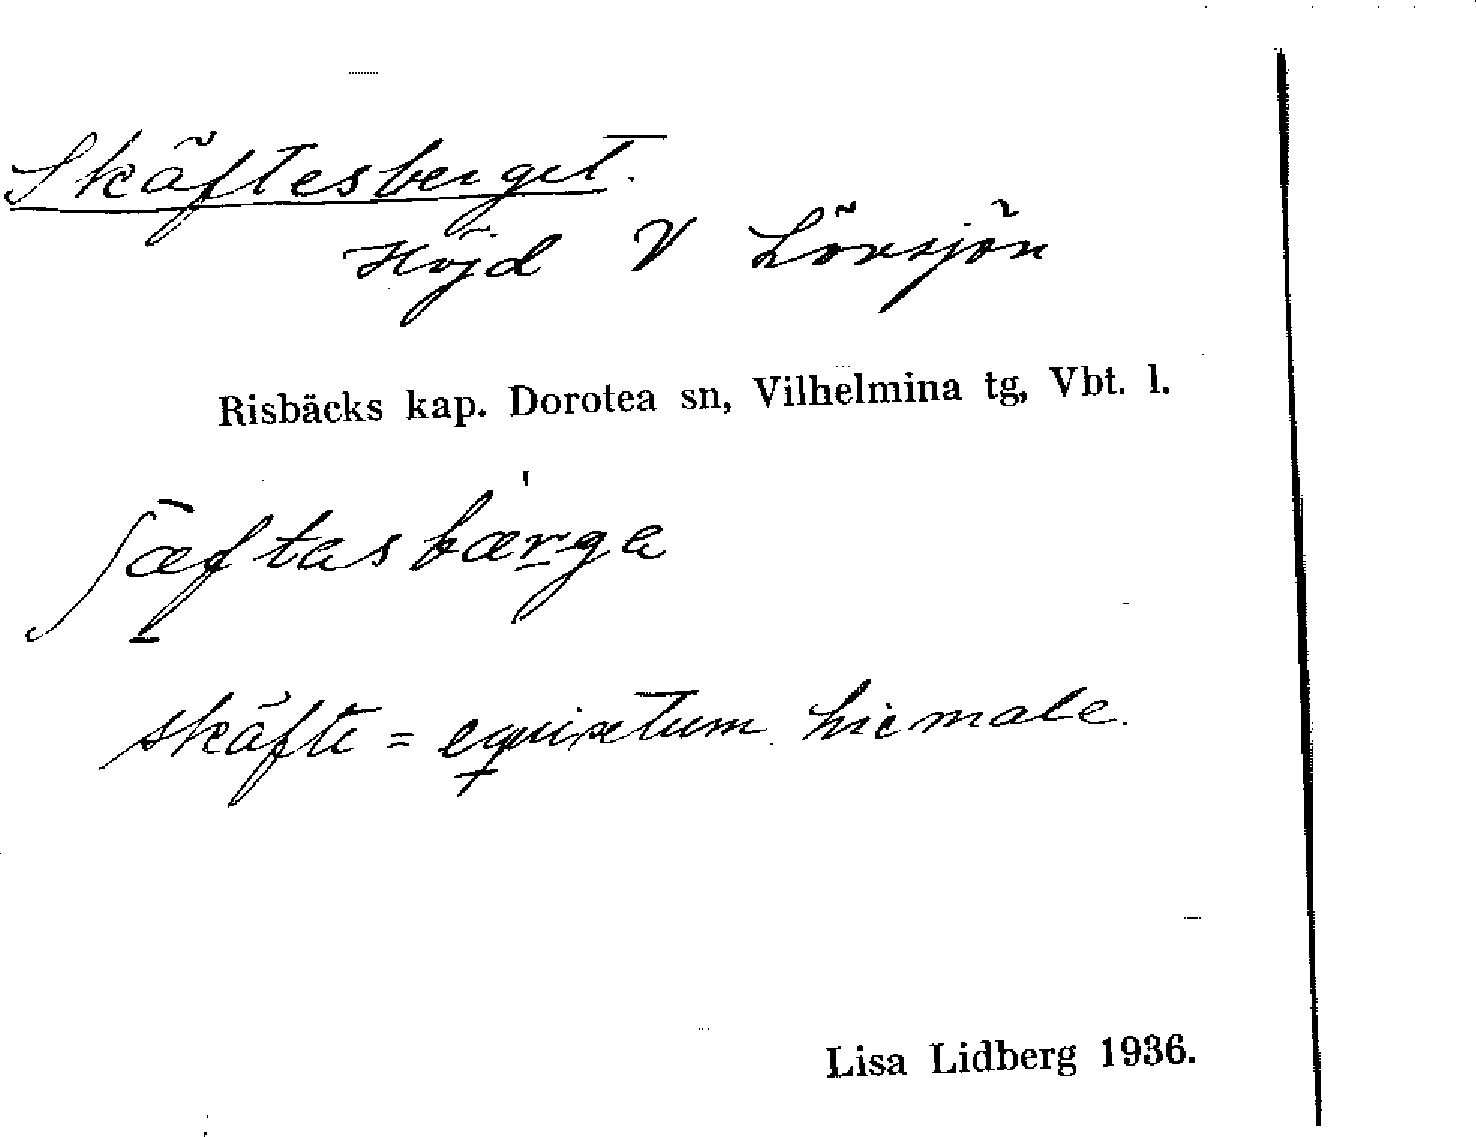 Skäftesberget.
Höjd V Lövsjön
Risbäcks kap. Dorotea sn, Vilhelmina tg, Vbt. l.
ʃæftasbærga
skäfte = equisetum hiemale.
Lisa Lidberg 1936.